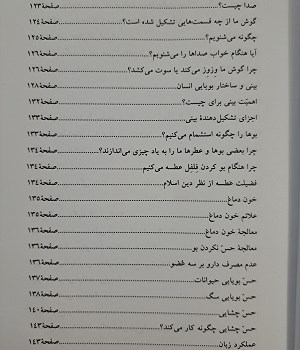 صدا چیست؟ صفحهٔ۱۲۳
گوش ما از چه قسمت‌هایی تشکیل شده است؟ صفحهٔ۱۲۴
چگونه می‌شنویم؟ صفحهٔ۱۲۵
آیا هنگام خواب صداها را می‌شنویم؟ صفحهٔ۱۲۶
چرا گوش ما وزوز می‌کند یا سوت می‌کشد؟ صفحهٔ۱۲۶
بینی و ساختار بویایی انسان صفحهٔ۱۲۸
اهمیّت بینی برای چیست؟ صفحهٔ۱۳۲
اجزای تشکیل‌دهندهٔ بینی صفحهٔ۱۳۳
بوها را چگونه استشمام می‌کنیم؟ صفحهٔ۱۳۳
چرا بعضی بوها و عطرها ما را به یاد چیزی می‌اندازند؟ صفحهٔ۱۳۴
چرا هنگام بو کردن فلفل عطسه می‌کنیم صفحهٔ۱۳۴
فضیلت عطسه از نظر دین اسلام صفحهٔ۱۳۴
خون دماغ صفحهٔ۱۳۵
علائم خون دماغ صفحهٔ۱۳۵
معالجهٔ خون دماغ صفحهٔ۱۳۶
معالجهٔ حسّ نکردن بو صفحهٔ۱۳۶
عدم مصرف دارو بر سه عضو صفحهٔ۱۳۶
حسّ بویایی حیوانات صفحهٔ۱۳۷
حسّ بویایی سگ صفحهٔ۱۳۸
حسّ چشایی صفحهٔ۱۴۰
حسّ چشایی چگونه کار می‌کند؟ صفحهٔ۱۴۳
عملکرد زبان صفحهٔ۱۴۳